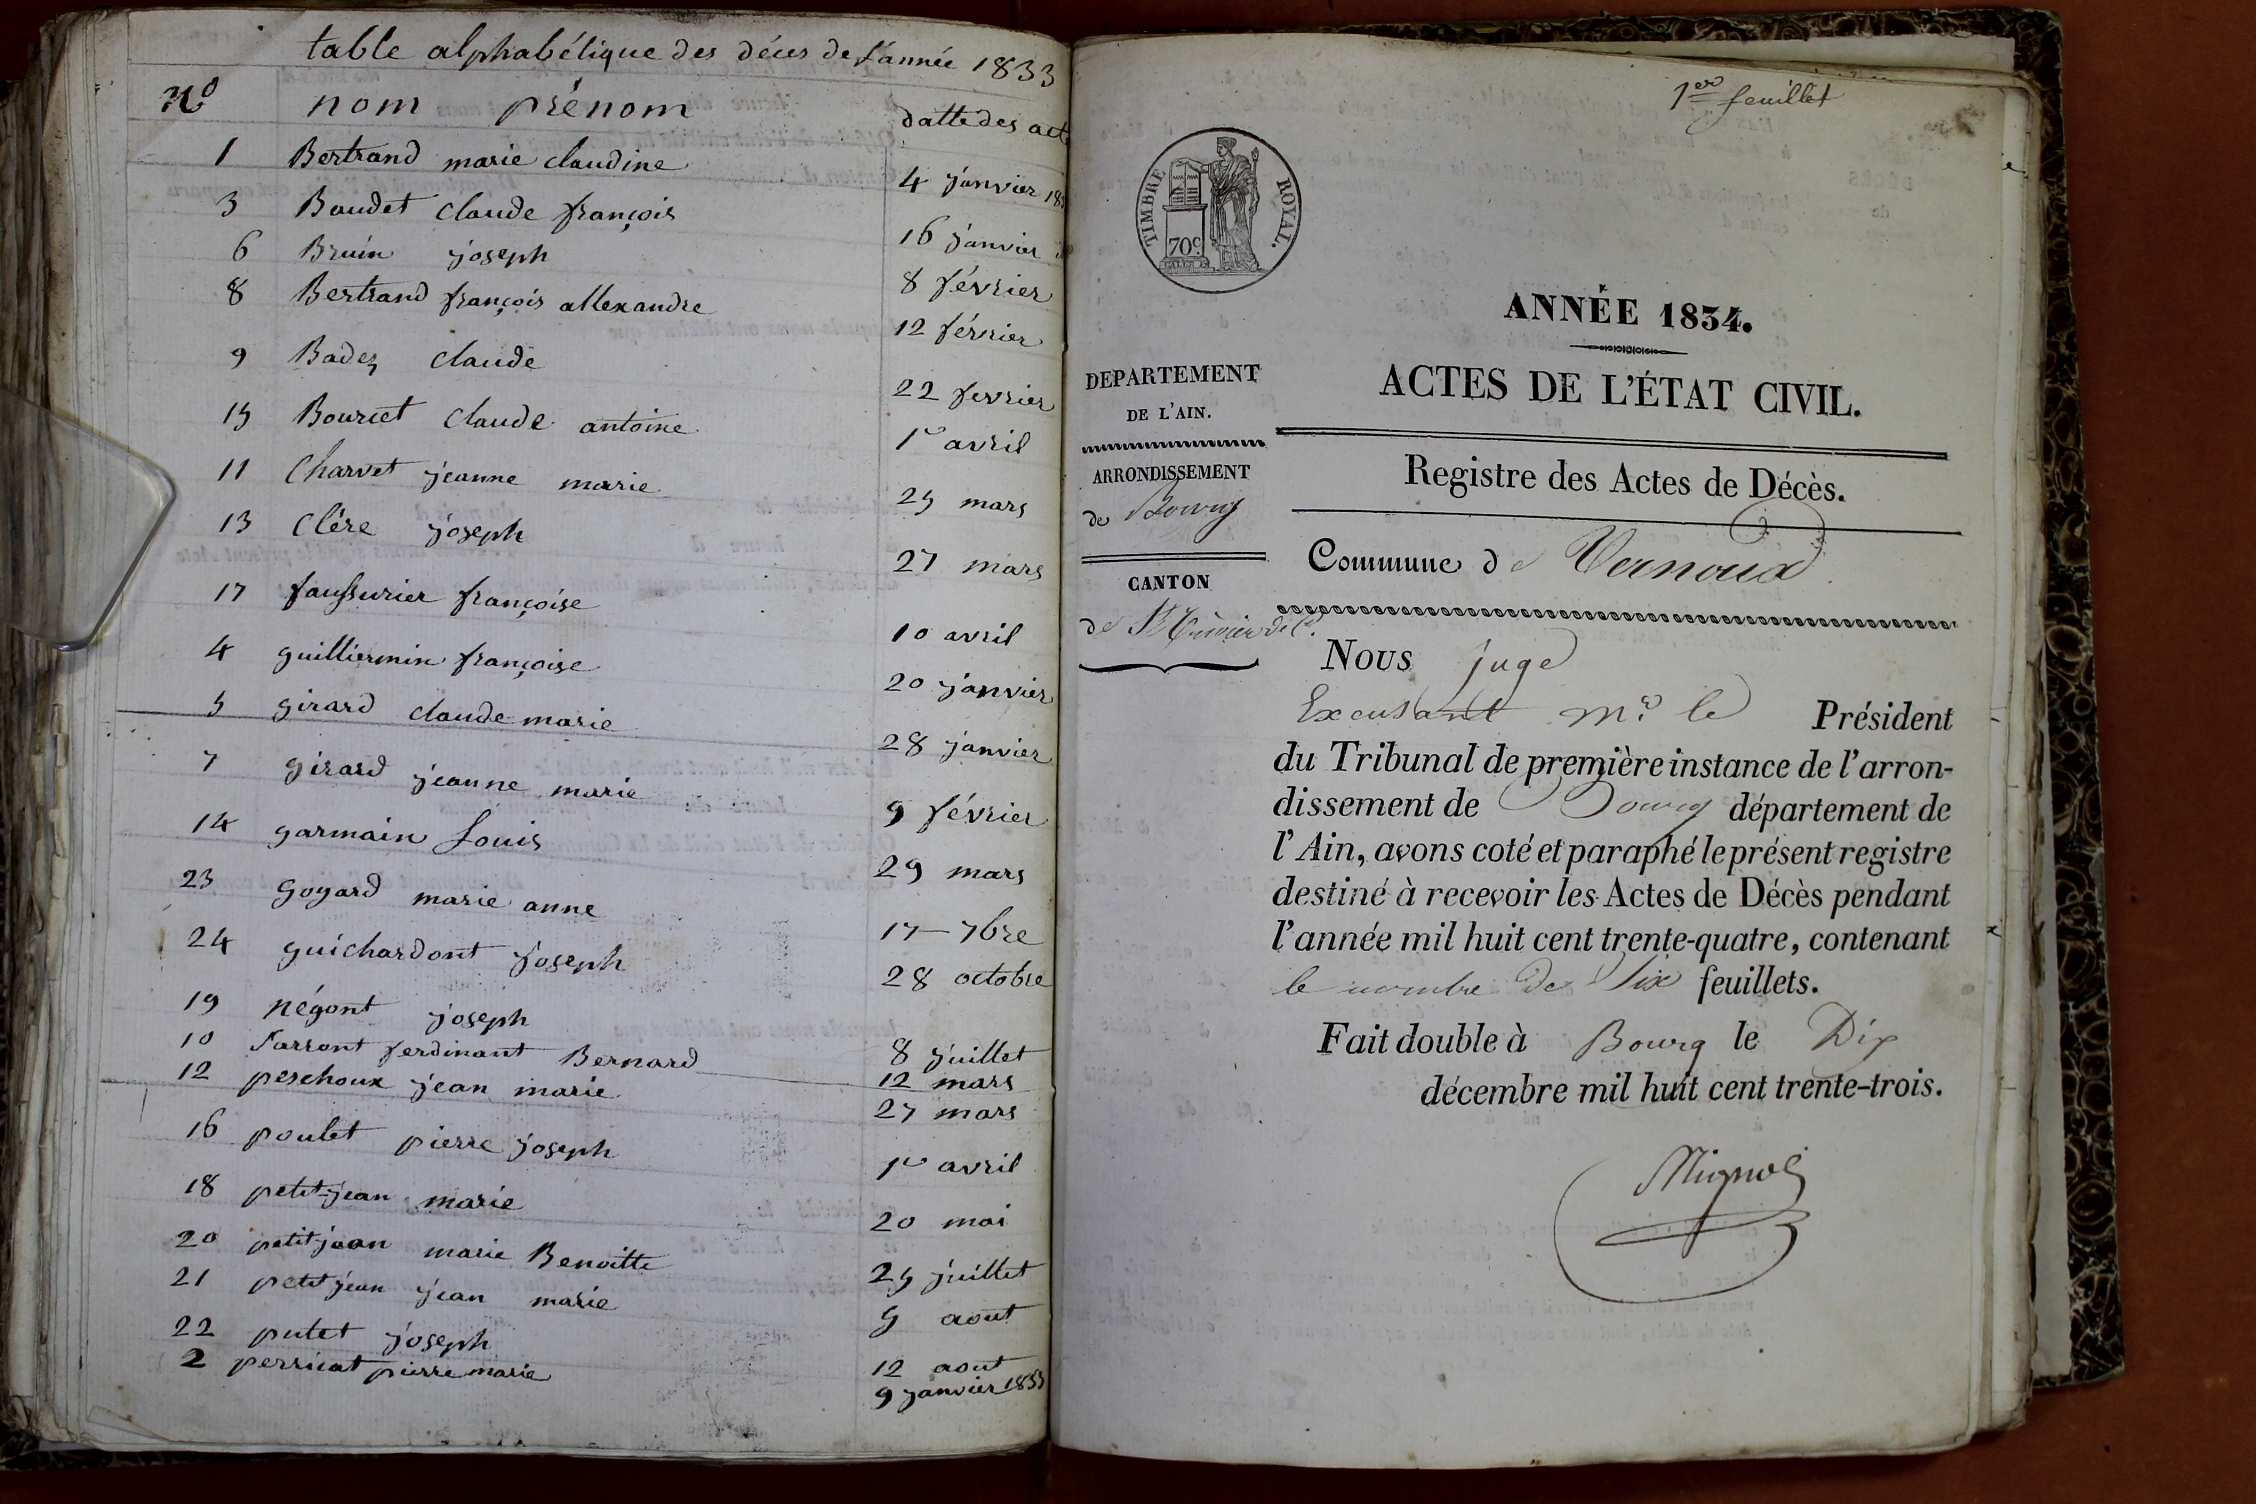 table alphabétique des déces de l'année 1833
No nom prénom datte des act
1 Bertrand marie claudine 4 janvier 183
3 Baudet claude françois 16 janvier
6 Bruin joseph 8 février
8 Bertrand françois allexandre 12 février
9 Badez claude 22 fevrier
15 Bourcet claude antoine 1er avril
11 Charvet jeanne marie 25 mars
13 Clére joseph 27 mars
17 faussurier françoise 10 avril
4 guilliermin françoise 20 janvier
5 girard claude marie 28 janvier
7 girard jeanne marie 9 février
14 garmain Louis 29 mars
23 goyard marie anne 17 7bre
24 guichardont joseph 28 octobre
19 négont joseph 8 juillet
10 ferdinant Bernard 12 mars
12 peschoux jean marie 27 mars
16 poulet pierre joseph 1er avril
18 petit-jean marie 20 mai
20 petitjean marie Benoitte 25 juillet
21 petitjean jean marie 9 aout
22 putet joseph 12 aout
2 perricat pierre marie 9 janvier 1833
1er feuillet
TIMBRE ROYAL.
70c.
ANNÉE 1834.
ACTES DE L'ÉTAT CIVIL.
Registre des Actes de Décès.
DEPARTEMENT
DE L'AIN.
ARRONDISSEMENT
de Bourg
CANTON
de St Trivier de C.
Commune de Vernoux
Nous juge
Excusant Mr le Président
du Tribunal de première instance de l'arron-
dissement de Bourg département de
l'Ain, avons coté et paraphé le présent registre
destiné à recevoir les Actes de Décès pendant
l'année mil huit cent trente-quatre, contenant
le nombre de Six feuillets.
Fait double à Bourg le Dix
décembre mil huit cent trente-trois.